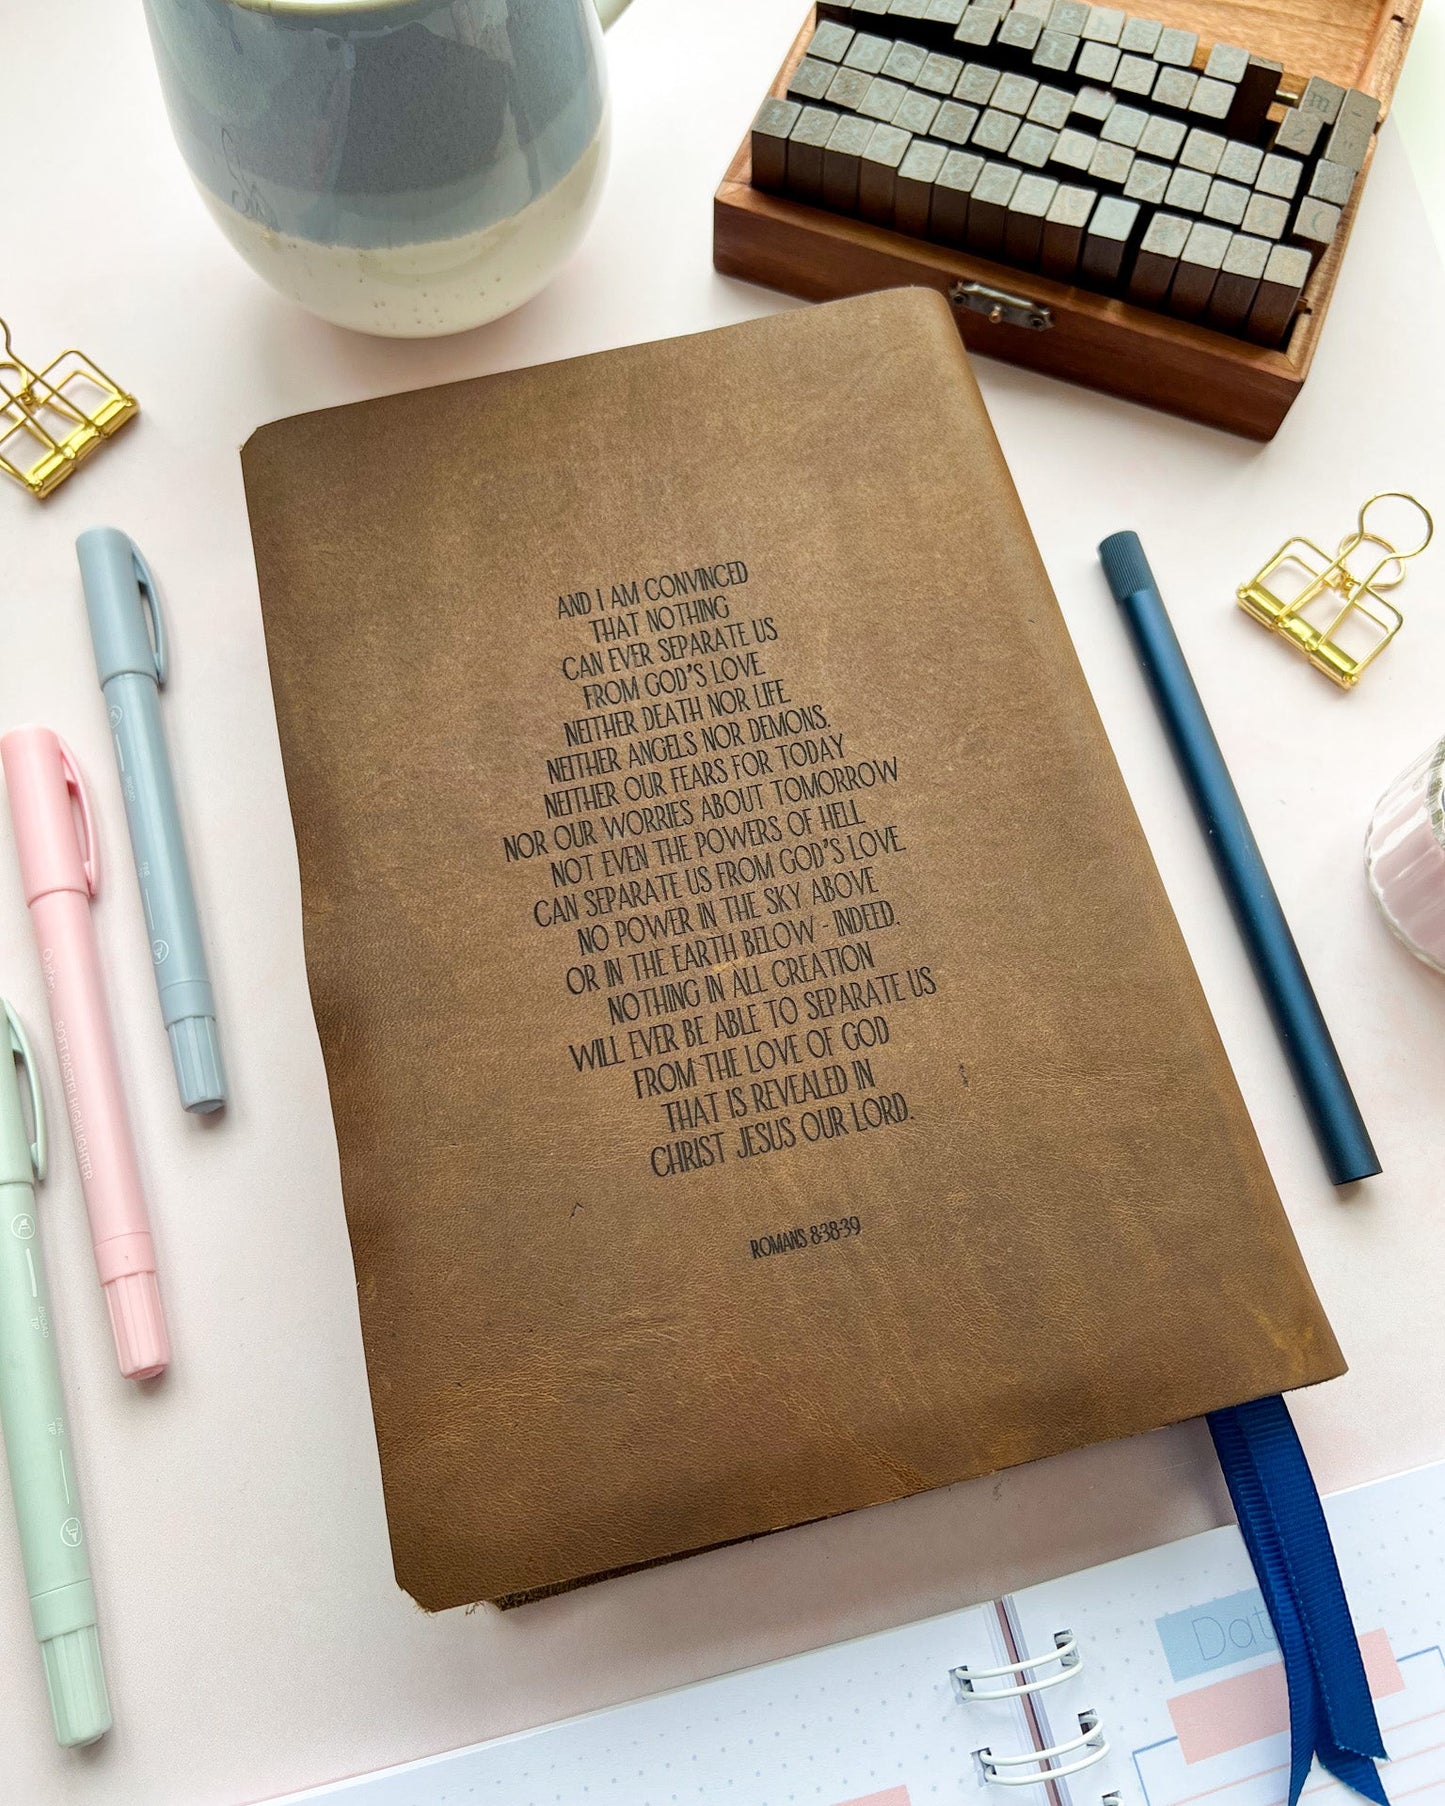 AND I AM CONVINCED
THAT NOTHING
CAN EVER SEPARATE US
FROM GOD'S LOVE
NEITHER DEATH NOR LIFE
NEITHER ANGELS NOR DEMONS.
NEITHER OUR FEARS FOR TODAY
NOR OUR WORRIES ABOUT TOMORROW
NOT EVEN THE POWERS OF HELL
CAN SEPARATE US FROM GOD'S LOVE.
NO POWER IN THE SKY ABOVE
OR IN THE EARTH BELOW - INDEED.
NOTHING IN ALL CREATION
WILL EVER BE ABLE TO SEPARATE US
FROM THE LOVE OF GOD
THAT IS REVEALED IN
CHRIST JESUS OUR LORD.
ROMANS 8:38-39
SOFT PASTEL HIGHLIGHTER
BROAD
TIP
FINE
TIP